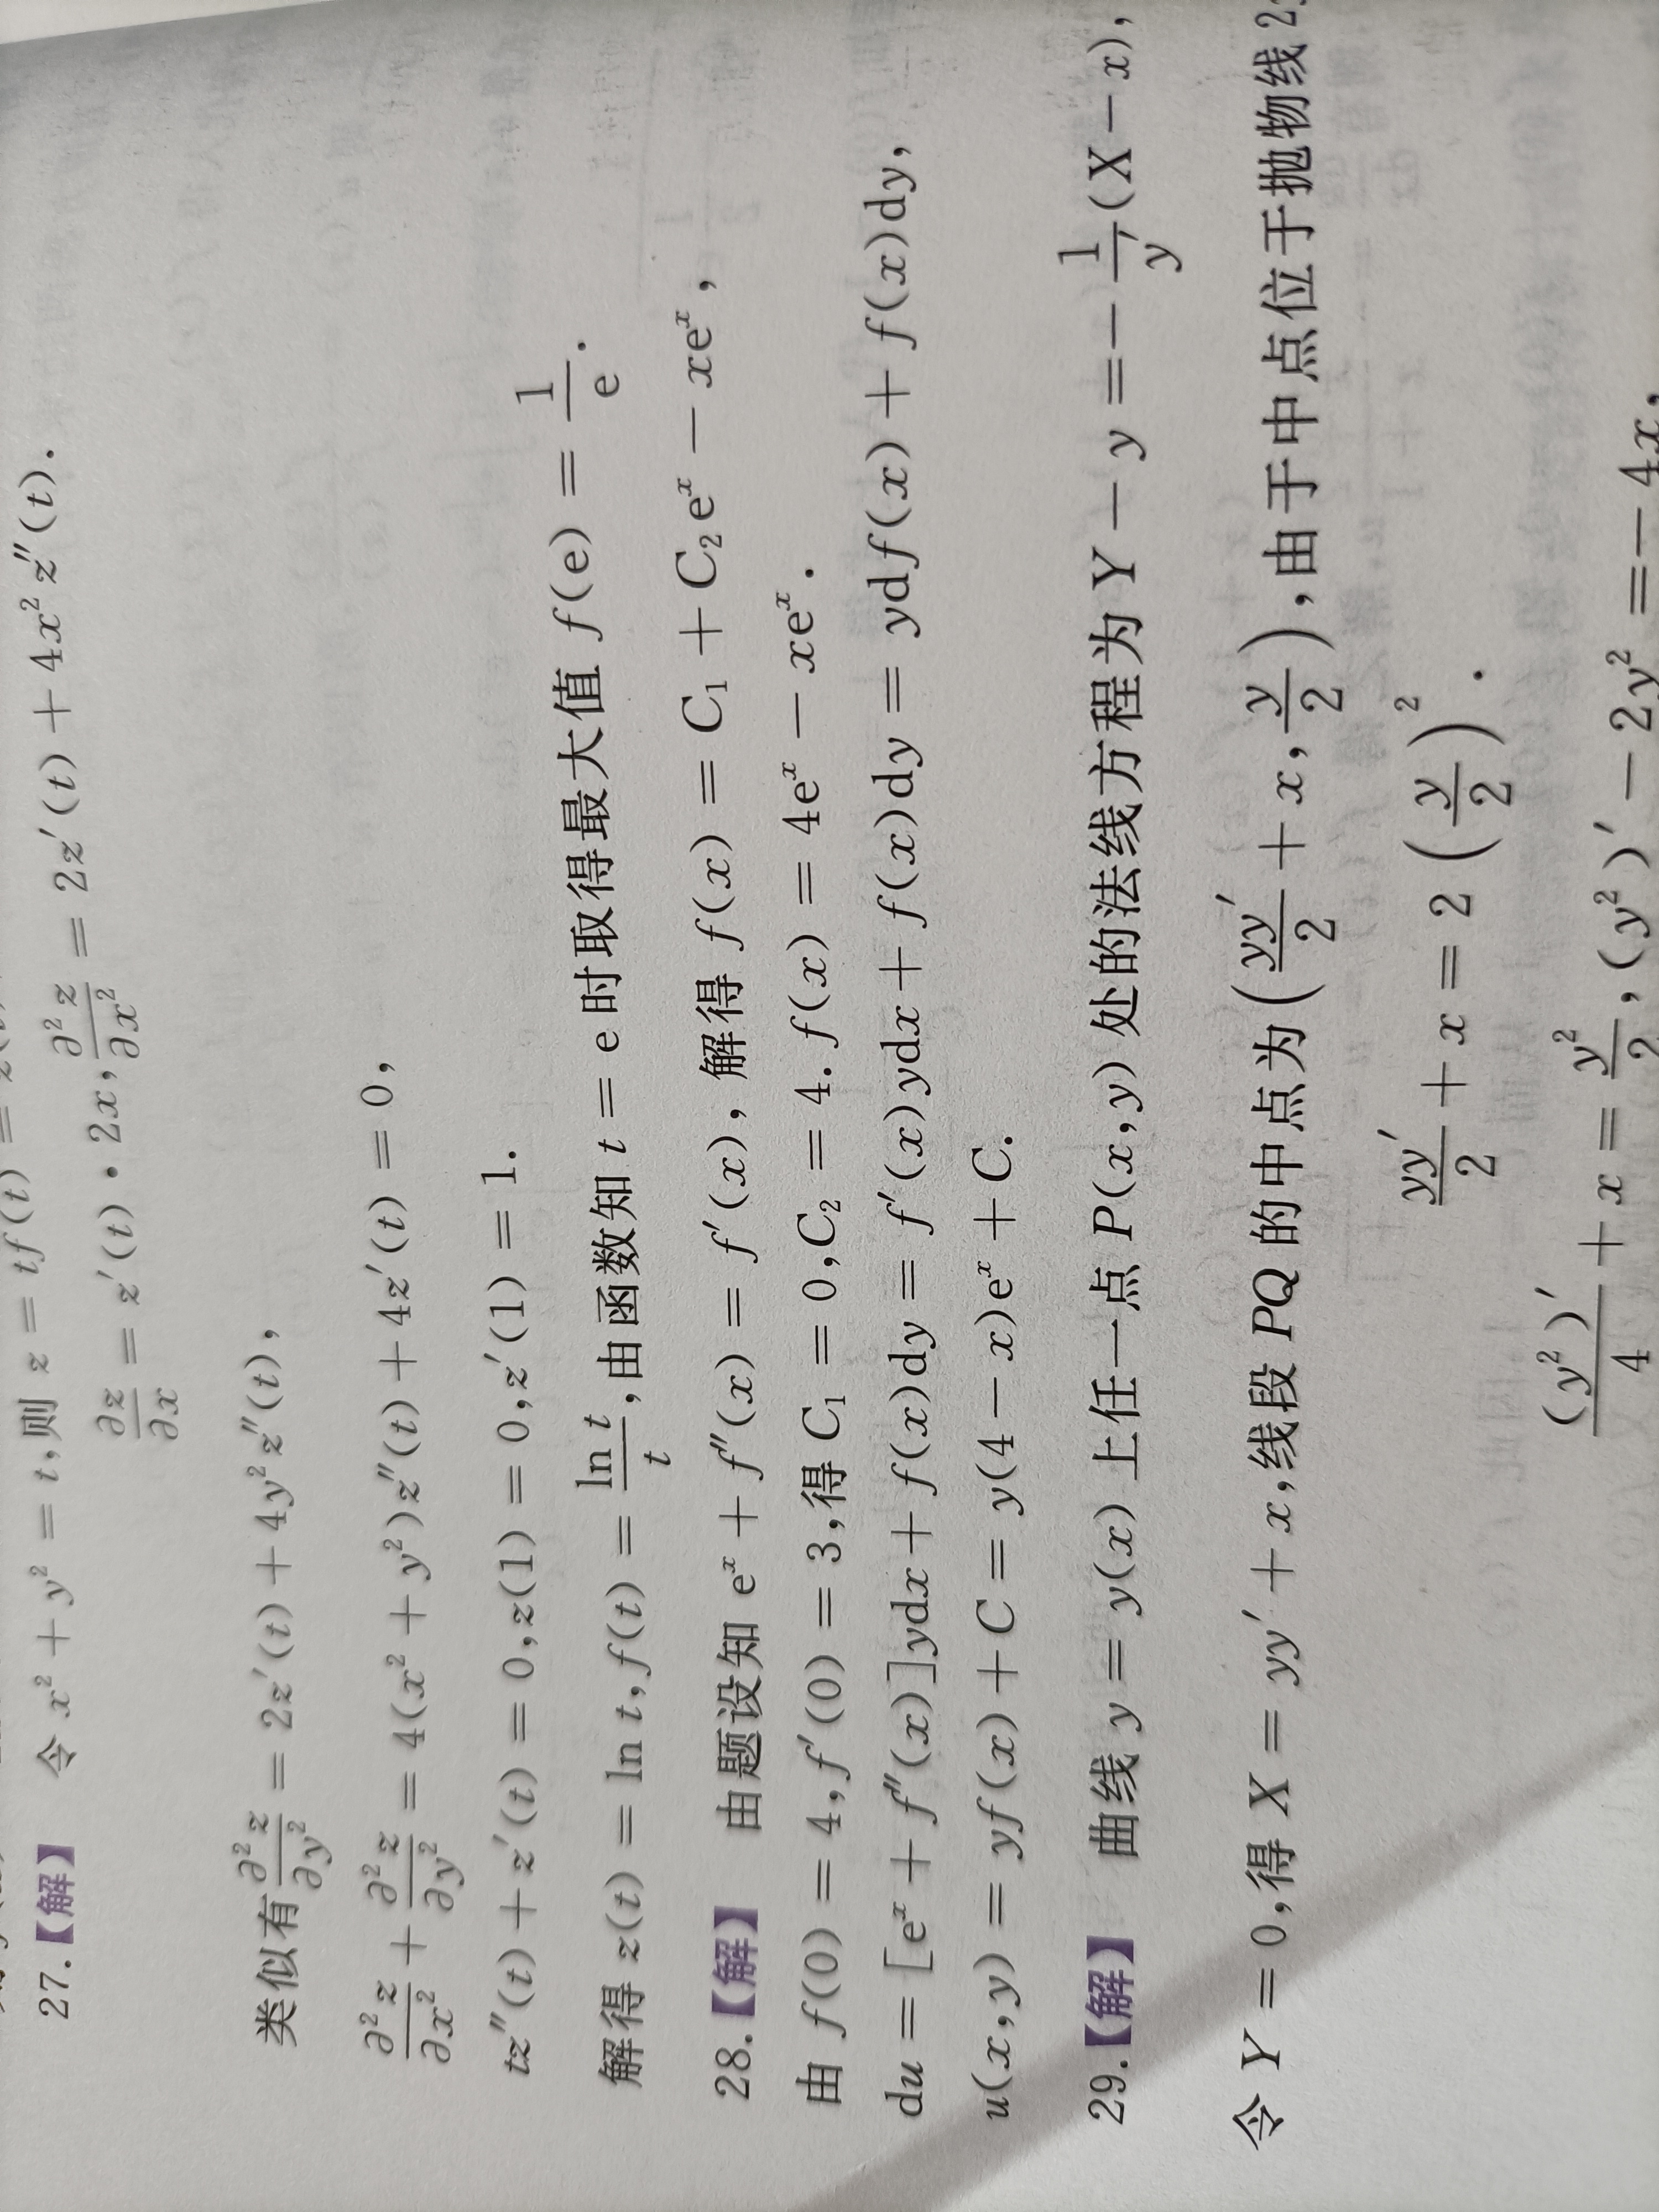 27.【解】 令 x² + y² = t,则 z = tf(t) =
∂z/∂x = z′(t)·2x, ∂²z/∂x² = 2z′(t) + 4x²z″(t).
类似有 ∂²z/∂y² = 2z′(t) + 4y²z″(t),
∂²z/∂x² + ∂²z/∂y² = 4(x² + y²)z″(t) + 4z′(t) = 0,
tz″(t) + z′(t) = 0,z(1) = 0,z′(1) = 1.
解得 z(t) = ln t,f(t) = ln t/t,由函数知 t = e 时取得最大值 f(e) = 1/e.
28.【解】 由题设知 eˣ + f″(x) = f′(x),解得 f(x) = C₁ + C₂eˣ − xeˣ,
由 f(0) = 4,f′(0) = 3,得 C₁ = 0,C₂ = 4. f(x) = 4eˣ − xeˣ.
du = [eˣ + f″(x)]ydx + f(x)dy = f′(x)ydx + f(x)dy = ydf(x) + f(x)dy,
u(x,y) = yf(x) + C = y(4 − x)eˣ + C.
29.【解】 曲线 y = y(x) 上任一点 P(x,y) 处的法线方程为 Y − y = − 1/y′ (X − x),
令 Y = 0,得 X = yy′ + x,线段 PQ 的中点为 (yy′/2 + x, y/2),由于中点位于抛物线 2
yy′/2 + x = 2 (y/2)².
(y²)′/4 + x = y²/2, (y²)′ − 2y² = − 4x,